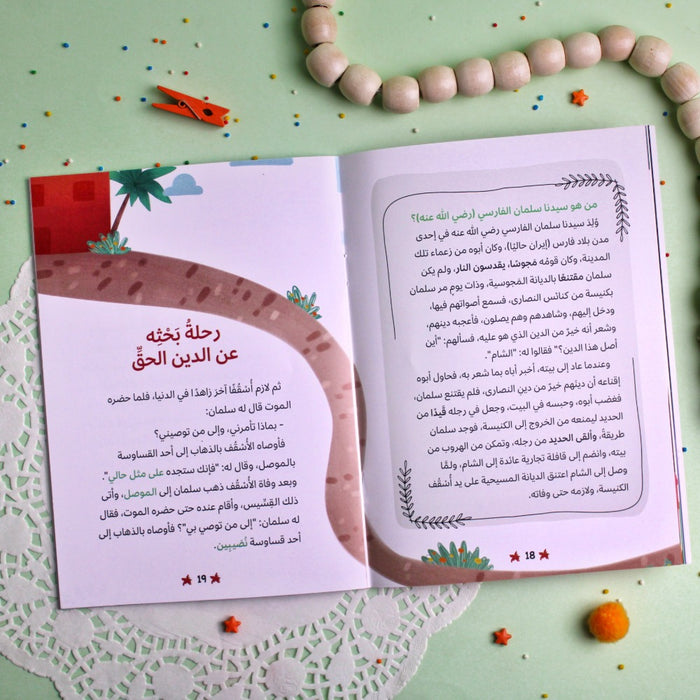 من هو سيدنا سلمان الفارسي (رضي الله عنه)؟
وُلِدَ سيدنا سلمان الفارسي رضي الله عنه في إحدى
مدن بلاد فارس (إيران حاليًا)، وكان أبوه من زعماء تلك
المدينة، وكان قومُه مَجوسًا، يقدسون النار، ولم يكن
سلمان مقتنعًا بالديانة المَجوسية، وذات يومٍ مر سلمان
بكنيسة من كنائس النصارى، فسمع أصواتهم فيها،
ودخل إليهم، وشاهدهم وهم يصلون، فأعجبه دينهم،
وشعر أنه خيرٌ من الدين الذي هو عليه، فسألهم: "أين
أصل هذا الدين؟" فقالوا له: "الشام".
وعندما عاد إلى بيته، أخبر أباه بما شعر به، فحاول أبوه
إقناعه أن دينهم خيرٌ من دينِ النصارى، فلم يقتنع سلمان،
فغضب أبوه، وحبسه في البيت، وجعل في رجله قَيدًا من
الحديد ليمنعه من الخروج إلى الكنيسة، فوجد سلمان
طريقةً، وألقى الحديد من رجله، وتمكن من الهروب من
بيته، وانضم إلى قافلة تجارية عائدة إلى الشام، ولمَّا
وصل إلى الشام اعتنق الديانة المسيحية على يد أُسْقُف
الكنيسة، ولازمه حتى وفاته.
18
رحلةُ بَحْثِه
عن الدين الحقِّ
ثم لازم أُسْقُفًا آخرَ زاهدًا في الدنيا، فلما حضره
الموت قال له سلمان:
- بماذا تأمرني، وإلى من توصيني؟
فأوصاه الأُسْقُف بالذهاب إلى أحد القساوسة
بالموصل، وقال له: "فإنك ستجده على مثل حالي".
وبعد وفاة الأُسْقُف ذهب سلمان إلى الموصل، وأتى
ذلك القِسِّيس، وأقام عنده حتى حضره الموت، فقال
له سلمان: "إلى من توصي بي"؟ فأوصاه بالذهاب إلى
أحد قساوسة نَصِّيبِين.
19